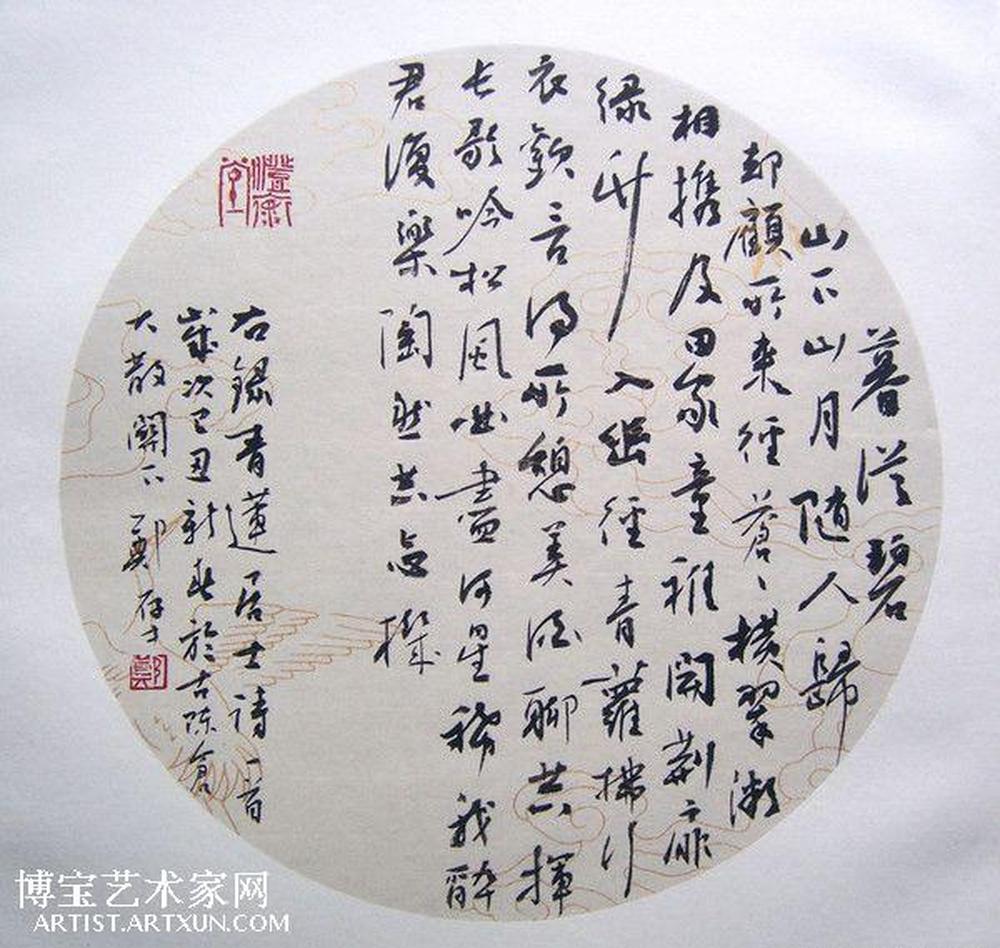 暮從碧
山下山月随人歸
却顧所来徑蒼〻横翠微
相携及田家童稚開荆扉
绿竹入幽徑青蘿拂行
衣歡言得所憩美酒聊共揮
长歌吟松風曲盡河星稀我醉
君復樂陶然共忘機
右録青蓮居士詩一首
歲次己丑新春於古陳倉
大散關下鄭
鄭
博宝艺术家网
ARTIST.ARTXUN.COM